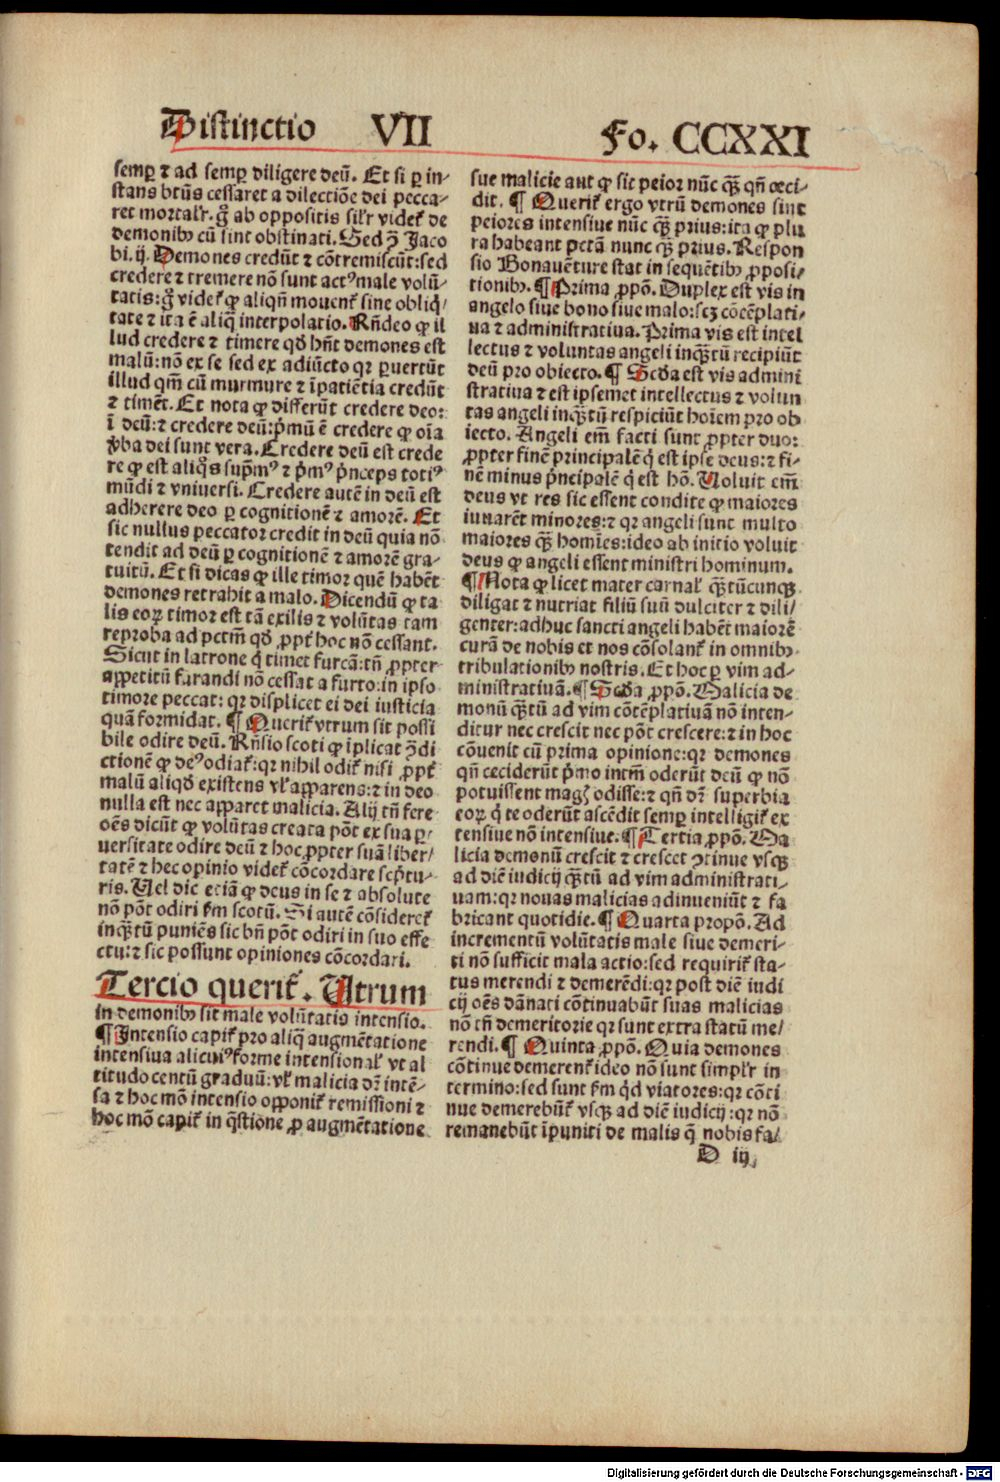 Distinctio VII Fo. CCXXI
semꝑ ⁊ ad semꝑ diligere deū. Et si ꝑ in-
stans btūs cessaret a dilectiōe dei pecca-
ret mortalr̄. ḡ ab oppositis silr̄ videt᷑ de
demonibꝰ cū sint obstinati. Sed ꝯ̄ Jaco
bi. ij. Demones credūt ⁊ cōtremiscūt: sed
credere ⁊ tremere nō sunt actꝰ male volū-
tatis: ḡ videt᷑ ꝙ aliqn̄ mouent᷑ sine obliq̄/
tate ⁊ ita ē aliq̄ interpolatio. Rn̄deo ꝙ il
lud credere ⁊ timere qd̄ hn̄t demones est
malū: nō ex se sed ex adiūcto qꝛ ꝑuertūt
illud qm̄ cū murmure ⁊ īpatiētia credūt
⁊ timēt. Et nota ꝙ differūt credere deo:
ī deū: ⁊ credere deū: pͥmū ē credere ꝙ oīa
ꝟba dei sunt vera. Credere deū est crede
re ꝙ est aliqͥs supͫmꝰ ⁊ pͥmꝰ pͥnceps totiꝰ
mūdi ⁊ vniuersi. Credere autē in deū est
adherere deo ꝑ cognitionē ⁊ amorē. Et
sic nullus peccator credit in deū quia nō
tendit ad deū ꝑ cognitionē ⁊ amorē gra-
tuitū. Et si dicas ꝙ ille timor quē habēt
demones retrahit a malo. Dicendū ꝙ ta
lis eoꝝ timor est tā exilis ⁊ volūtas tam
reproba ad pctm̄ qd̄ ꝓpt᷑ hoc nō cessant.
Sicut in latrone qͥ timet furcā: tn̄ ꝓpter
appetitū furandi nō cessat a furto: in ipso
timore peccat: qꝛ displicet ei dei iusticia
quā formidat. ¶ Querit᷑ vtrum sit possi
bile odire deū. Rn̄sio scoti ꝙ īplicat ꝯ̄di
ctionē ꝙ deꝰ odiat᷑: qꝛ nihil odit᷑ nisi ꝓpt᷑
malū aliqd̄ existens vl᷑ apparens: ⁊ in deo
nulla est nec apparet malicia. Alij tn̄ fere
oēs dicūt ꝙ volūtas creata pōt ex sua ꝑ-
uersitate odire deū ⁊ hoc ꝓpter suā liber/
tatē ⁊ hec opinio videt᷑ cōcordare scptu-
ris. Uel dic etiā ꝙ deus in se ⁊ absolute
nō pōt odiri ẜm scotū. Si autē cōsideret᷑
inqͣꝫtū puniēs sic bn̄ pōt odiri in suo effe
ctu: ⁊ sic possunt opiniones cōcordari.
Tercio querit᷑. Utrum
in demonibꝰ sit male volūtatis intensio.
¶ Intensio capit᷑ pro aliq̄ augmētatione
intensiua alicuiꝰ forme intensional᷑ vt al
titudo centū graduū: vl᷑ malicia dr̄ intē-
sa ⁊ hoc mō intensio opponit᷑ remissioni ⁊
hoc mō capit᷑ in q̄stione ꝓ augmētatione
sue malicie aut ꝙ sit peior nūc qͣꝫ qn̄ ceci-
dit. ¶ Querit᷑ ergo vtrū demones sint
peiores intensiue nūc qͣꝫ prius: ita ꝙ plu
ra habeant pctā nunc qͣꝫ prius. Respon
sio Bonauēture stat in sequētibꝰ ꝓposi-
tionibꝰ. ¶ Prima ꝓpō. Duplex est vis in
angelo siue bono siue malo: scꝫ cōtēplati-
ua ⁊ administratiua. Prima vis est intel
lectus ⁊ voluntas angeli inqͣꝫtū recipiūt
deū pro obiecto. ¶ Scd̄a est vis admini
stratiua ⁊ est ipsemet intellectus ⁊ volun
tas angeli inqͣꝫtū respiciūt hoīem pro ob
iecto. Angeli em̄ facti sunt ꝓpter duo:
ꝓpter finē principalē qͥ est ipse deus: ⁊ fi-
nē minus pͥncipalē qͥ est hō. Uoluit em̄
deus vt res sic essent condite ꝙ maiores
iuuarēt minores: ⁊ qꝛ angeli sunt multo
maiores qͣꝫ homīes: ideo ab initio voluit
deus ꝙ angeli essent ministri hominum.
¶ Nota ꝙ licet mater carnal᷑ qͣꝫtūcunqꝫ
diligat ⁊ nutriat filiū suū dulciter ⁊ dili/
genter: adhuc sancti angeli habēt maiorē
curā de nobis et nos cōsolant᷑ in omnibꝰ
tribulationibꝰ nostris. Et hoc ꝑ vim ad-
ministratiuā. ¶ Scd̄a ꝓpō. Malicia de
monū qͣꝫtū ad vim cōtēplatiuā nō inten-
ditur nec crescit nec pōt crescere: ⁊ in hoc
cōuenit cū prima opinione: qꝛ demones
qn̄ ceciderūt pͥmo intm̄ oderūt deū ꝙ nō
potuissent magꝭ odisse: ⁊ qn̄ dr̄ superbia
eoꝝ qͥ te oderūt ascēdit semꝑ intelligit᷑ ex
tensiue nō intensiue. ¶ Tertia ꝓpō. Ma
licia demonū crescit ⁊ crescet ꝯtinue vsqꝫ
ad diē iudicij qͣꝫtū ad vim administrati-
uam: qꝛ nouas malicias adinueniūt ⁊ fa
bricant quotidie. ¶ Quarta propō. Ad
incrementū volūtatis male siue demeri-
ti nō sufficit mala actio: sed requirit᷑ sta-
tus merendi ⁊ demerēdi: qꝛ post diē iudi
cij oēs dānati cōtinuabūt suas malicias
nō tn̄ demeritorie qꝛ sunt extra statū me/
rendi. ¶ Quinta ꝓpō. Quia demones
cōtinue demerent᷑ ideo nō sunt simplr̄ in
termino: sed sunt ẜm qͥd viatores: qꝛ cōti
nue demerebūt᷑ vsqꝫ ad diē iudicij: qꝛ nō
remanebūt īpuniti de malis q̄ nobis fa/
D iij
Digitalisierung gefördert durch die Deutsche Forschungsgemeinschaft - DFG